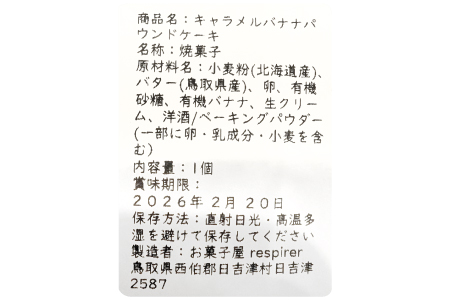 商品名：キャラメルバナナパ
ウンドケーキ
名称：焼菓子
原材料名：小麦粉(北海道産)、
バター(鳥取県産)、卵、有機
砂糖、有機バナナ、生クリー
ム、洋酒/ベーキングパウダー
(一部に卵・乳成分・小麦を含
む)
内容量：1個
賞味期限：
２０２６年２月２０日
保存方法：直射日光・高温多
湿を避けて保存してください
製造者：お菓子屋 respirer
鳥取県西伯郡日吉津村日吉津
2587